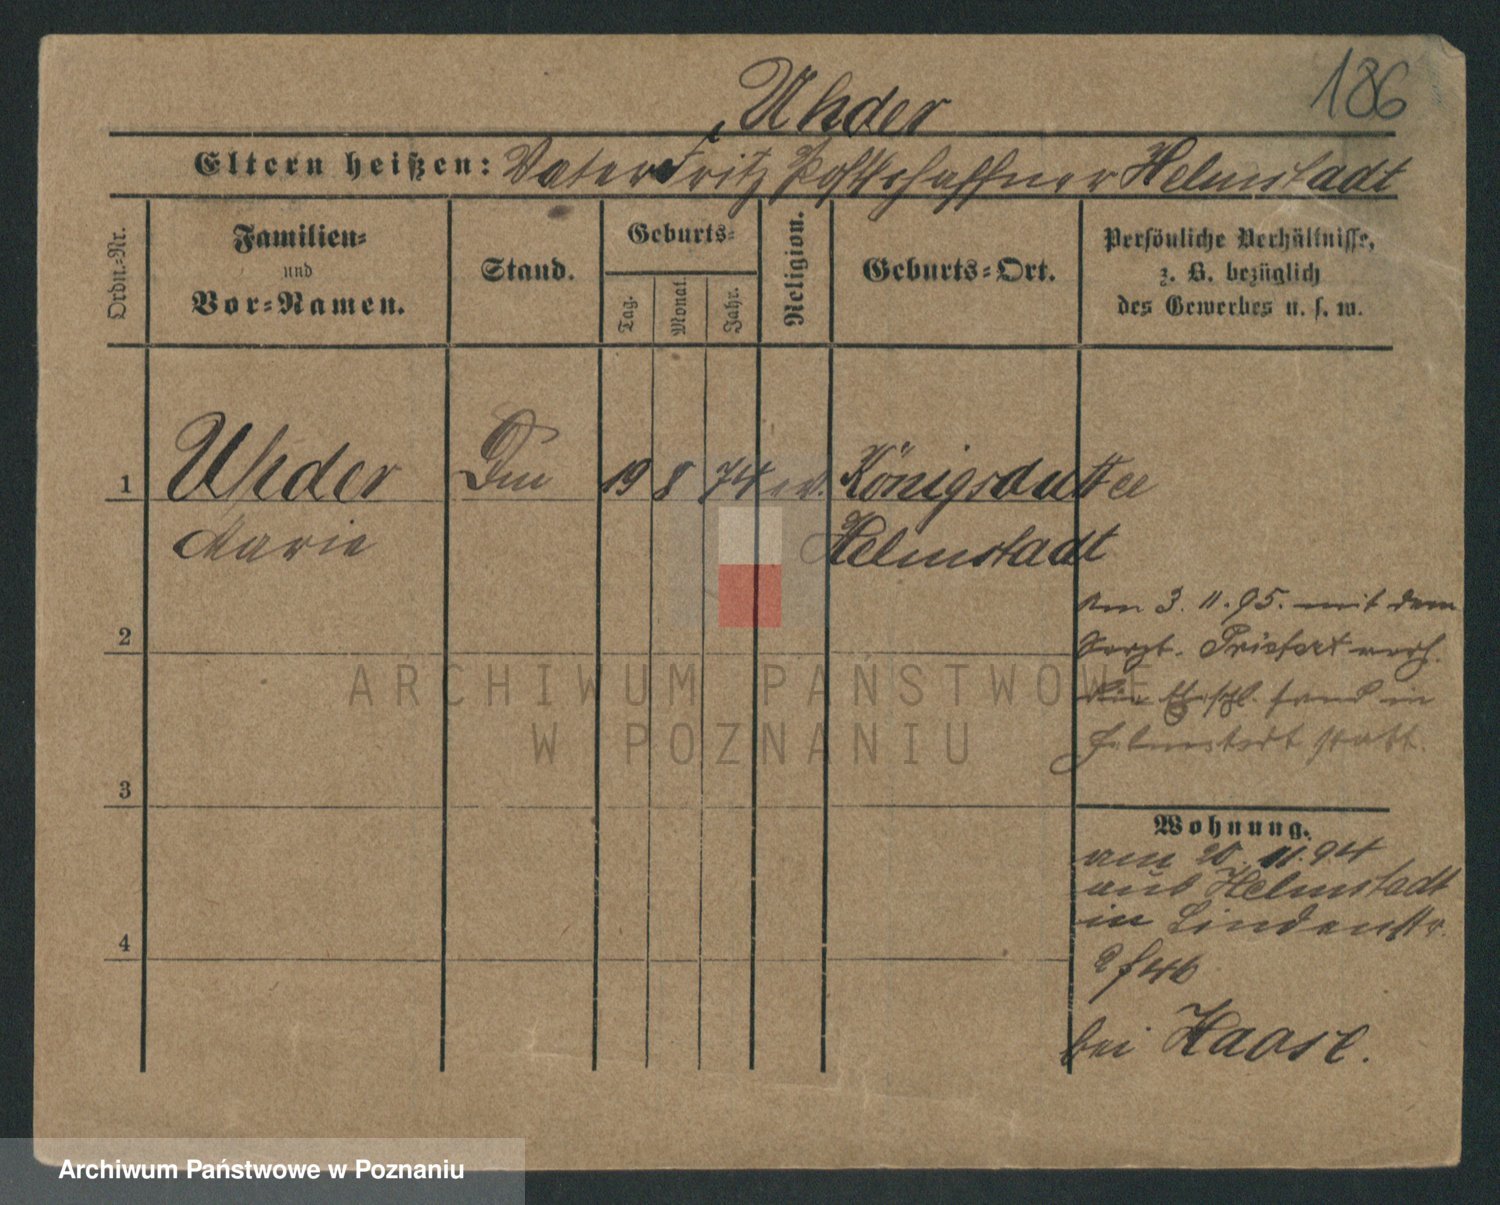 186
Uhder
Eltern heißen: Vater Fritz Postschaffner Helmstadt
Ordn.-Nr.
Familien-
und
Vor-Namen.
Stand.
Geburts-
Tag.
Monat.
Jahr.
Religion.
Geburts-Ort.
Persönliche Verhältnisse,
z. B. bezüglich
des Gewerbes u. s. w.
1 Uhder 19 8 74 ev. Königsdutter
Marie Helmstadt
am 3. 11. 95. mit dem
2
Sergt. verh.
Die Eheschl. fand in
Helmstedt statt.
3
Wohnung.
am 20. 11. 94
aus Helmstadt
in Lindenstr.
4
bei Haase.
ARCHIWUM PAŃSTWOWE
W POZNANIU
Archiwum Państwowe w Poznaniu